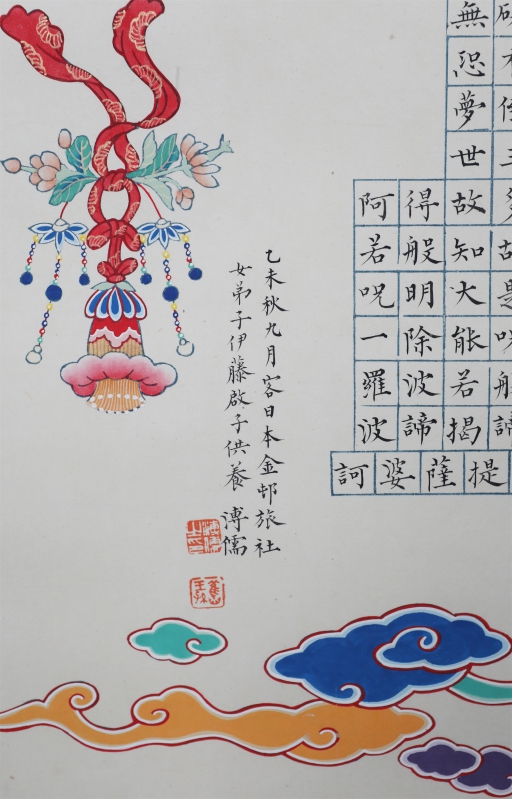 無恐夢世故知大能若揭
得般明除波諦
阿若呪一羅波
提薩婆訶
乙未秋九月客日本金邨旅社
女弟子伊藤啟子供養 溥儒
溥儒之印
舊王孫